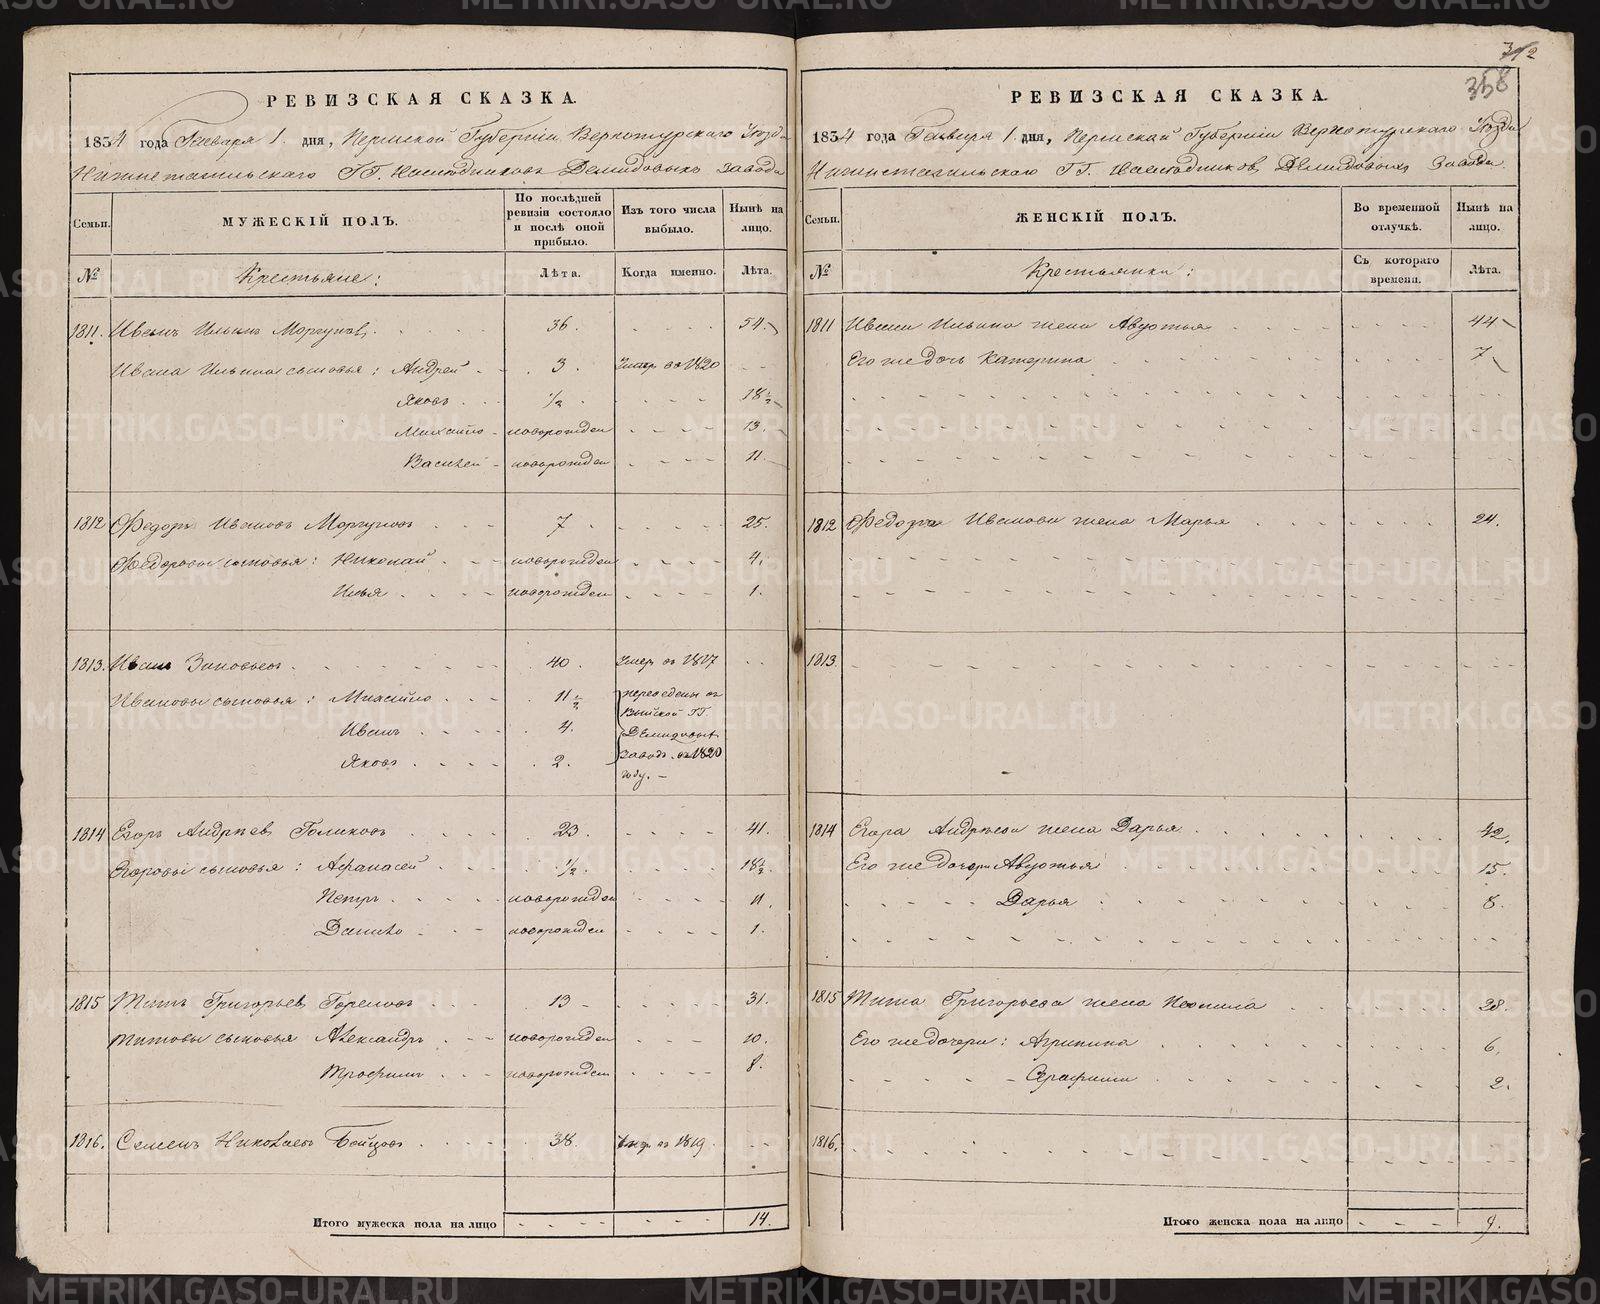 312
358
РЕВИЗСКАЯ СКАЗКА.
1834 года Генваря 1. дня, Пермской Губернiи Верхотурскаго Уѣзда
Нижнетагильскаго ГГ. Наслѣдниковъ Демидовыхъ завода
Семьи.
МУЖЕСКІЙ ПОЛЪ.
По послѣдней ревизіи состояло и послѣ оной прибыло.
Изъ того числа выбыло.
Нынѣ на лицо.
№
Крестьяне:
Лѣта.
Когда именно.
Лѣта.
1811. Иванъ Ильинъ Моргуновъ 36. 54.
Ивана Ильина сыновья: Андрей 3. Умеръ въ 1820
Яковъ 1/2 18 1/2
Михайло новорожден 13.
Василей новорожден 11.
1812 Федоръ Ивановъ Моргуновъ 7 25.
Федоровы сыновья: Николай новорожден 4.
Илья новорожден 1.
1813. Иванъ Зиновьевъ 40. Умеръ въ 1817
Ивановы сыновья: Михайло 11 1/2 переведены въ
Выйской ГГ.
Иванъ 4. Демидовыхъ
Яковъ 2. заводъ въ 1820
году.
1814 Егоръ Андрѣевъ Голиковъ 23. 41.
Егоровы сыновья: Афанасей 1/2. 18 1/2
Петръ новорожден 11.
Данило новорожден 1.
1815 Титъ Григорьевъ Гореловъ 13 31.
Титовы сыновья Александръ новорожден 10.
Трофимъ новорожден 8.
1816. Семенъ Николаевъ Бойцовъ 38. Умеръ въ 1819
Итого мужеска пола на лицо 14.
РЕВИЗСКАЯ СКАЗКА.
1834 года Генваря 1. дня, Пермской Губернiи Верхотурскаго Уѣзда
Нижнетагильскаго ГГ. Наслѣдниковъ Демидовыхъ Завода
Семьи.
ЖЕНСКІЙ ПОЛЪ.
Во временной отлучкѣ.
Нынѣ на лицо.
№
Крестьянки:
Съ котораго времени.
Лѣта.
1811 Ивана Ильина жена Авдотья 44
Его же дочь Катерина 7
1812 Федора Иванова жена Марья 24.
1813.
1814 Егора Андрѣева жена Дарья 42.
Его же дочери Авдотья 15.
Дарья 8.
1815 Тита Григорьева жена Неонила 28.
Его же дочери: Агрипина 6.
Серафима 2.
1816.
Итого женска пола на лицо 9.
METRIKI.GASO-URAL.RU